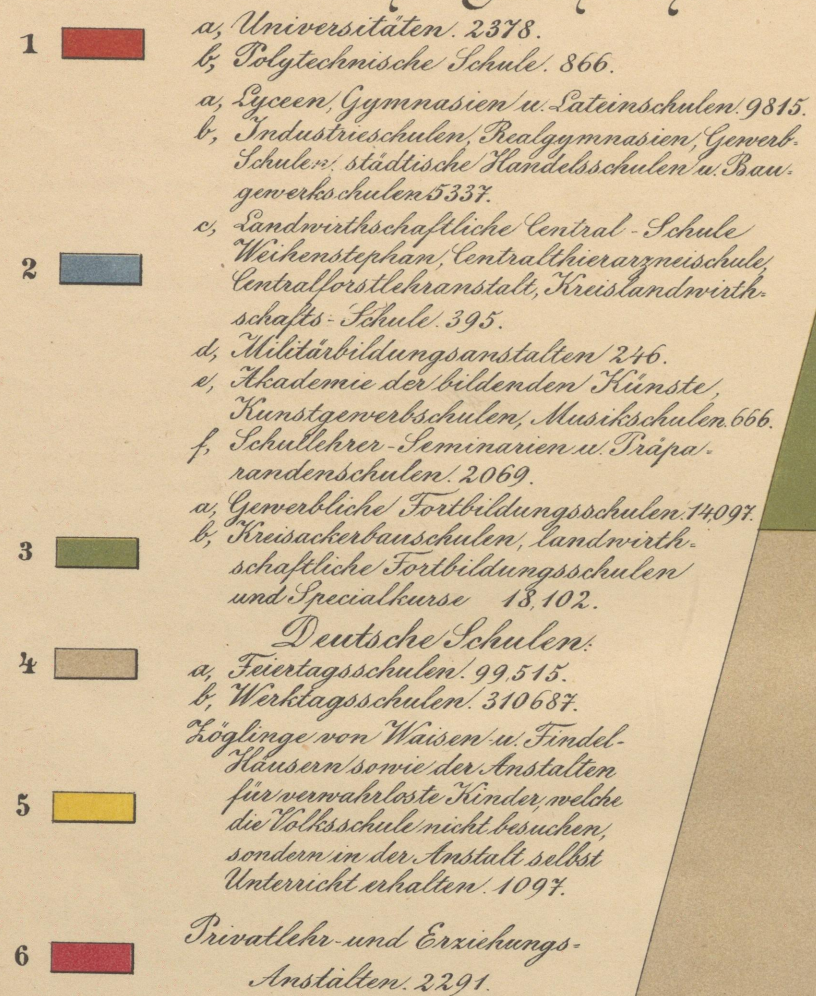 1 a, Universitäten. 2378.
b, Polytechnische Schule. 866.
a, Lyceen, Gymnasien u. Lateinschulen. 9815.
b, Industrieschulen, Realgymnasien, Gewerb-
Schulen, städtische Handelsschulen u. Bau-
gewerkschulen 5337.
c, Landwirthschaftliche Central-Schule
2 Weihenstephan, Centralthierarzneischule,
Centralforstlehranstalt, Kreislandwirth-
schafts-Schule. 395.
d, Militärbildungsanstalten 246.
e, Akademie der bildenden Künste,
Kunstgewerbschulen, Musikschulen. 666.
f, Schullehrer-Seminarien u. Präpa-
randenschulen. 2069.
a, Gewerbliche Fortbildungsschulen. 14,097.
3 b, Kreisackerbauschulen, landwirth-
schaftliche Fortbildungsschulen
und Specialkurse 18,102.
Deutsche Schulen:
4 a, Feiertagsschulen. 99,515.
b, Werktagsschulen. 310687.
Zöglinge von Waisen u. Findel-
Häusern sowie der Anstalten
5 für verwahrloste Kinder, welche
die Volksschule nicht besuchen,
sondern in der Anstalt selbst
Unterricht erhalten. 1097.
6 Privatlehr- und Erziehungs-
Anstalten. 2291.